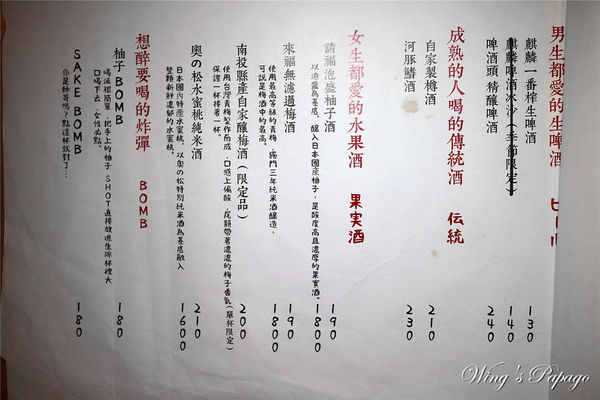 男生都愛的生啤酒 ビール
麒麟一番榨生啤酒 130
麒麟啤酒冰沙(季節限定) 140
啤酒頭 精釀啤酒 240
成熟的人喝的傳統酒 伝統
自家製樽酒 210
河豚鰭酒 230
女生都愛的水果酒 果実酒
請福泡盛柚子酒 190 1800
以泡盛為基底,釀入日本國產柚子,是酸度高且濃厚的果實酒。
來福無濾過梅酒 190 1800
使用最高等級的青梅,搗鬥三年純米酒釀造,
可說是梅酒中的最高。
南投縣產自家釀梅酒(限定品) 200
使用台灣青梅製作而成,口感上偏酸,尾韻帶著濃濃的梅子香氣(單杯限定)
保證一杯接著一杯。
奧の松水蜜桃純米酒 210 1600
日本國內特產水蜜桃,以奧の松特別純米酒為基底融入
整顆新鮮濃郁的水蜜桃。
想醉要喝的炸彈 BOMB
柚子BOMB 180
喝法很簡單,把手上的柚子SHOT直接放進生啤杯裡大
口喝下去,女性必點。
SAKE BOMB 180
你是帥哥嗎?點這杯就對了...
Wing's Papago